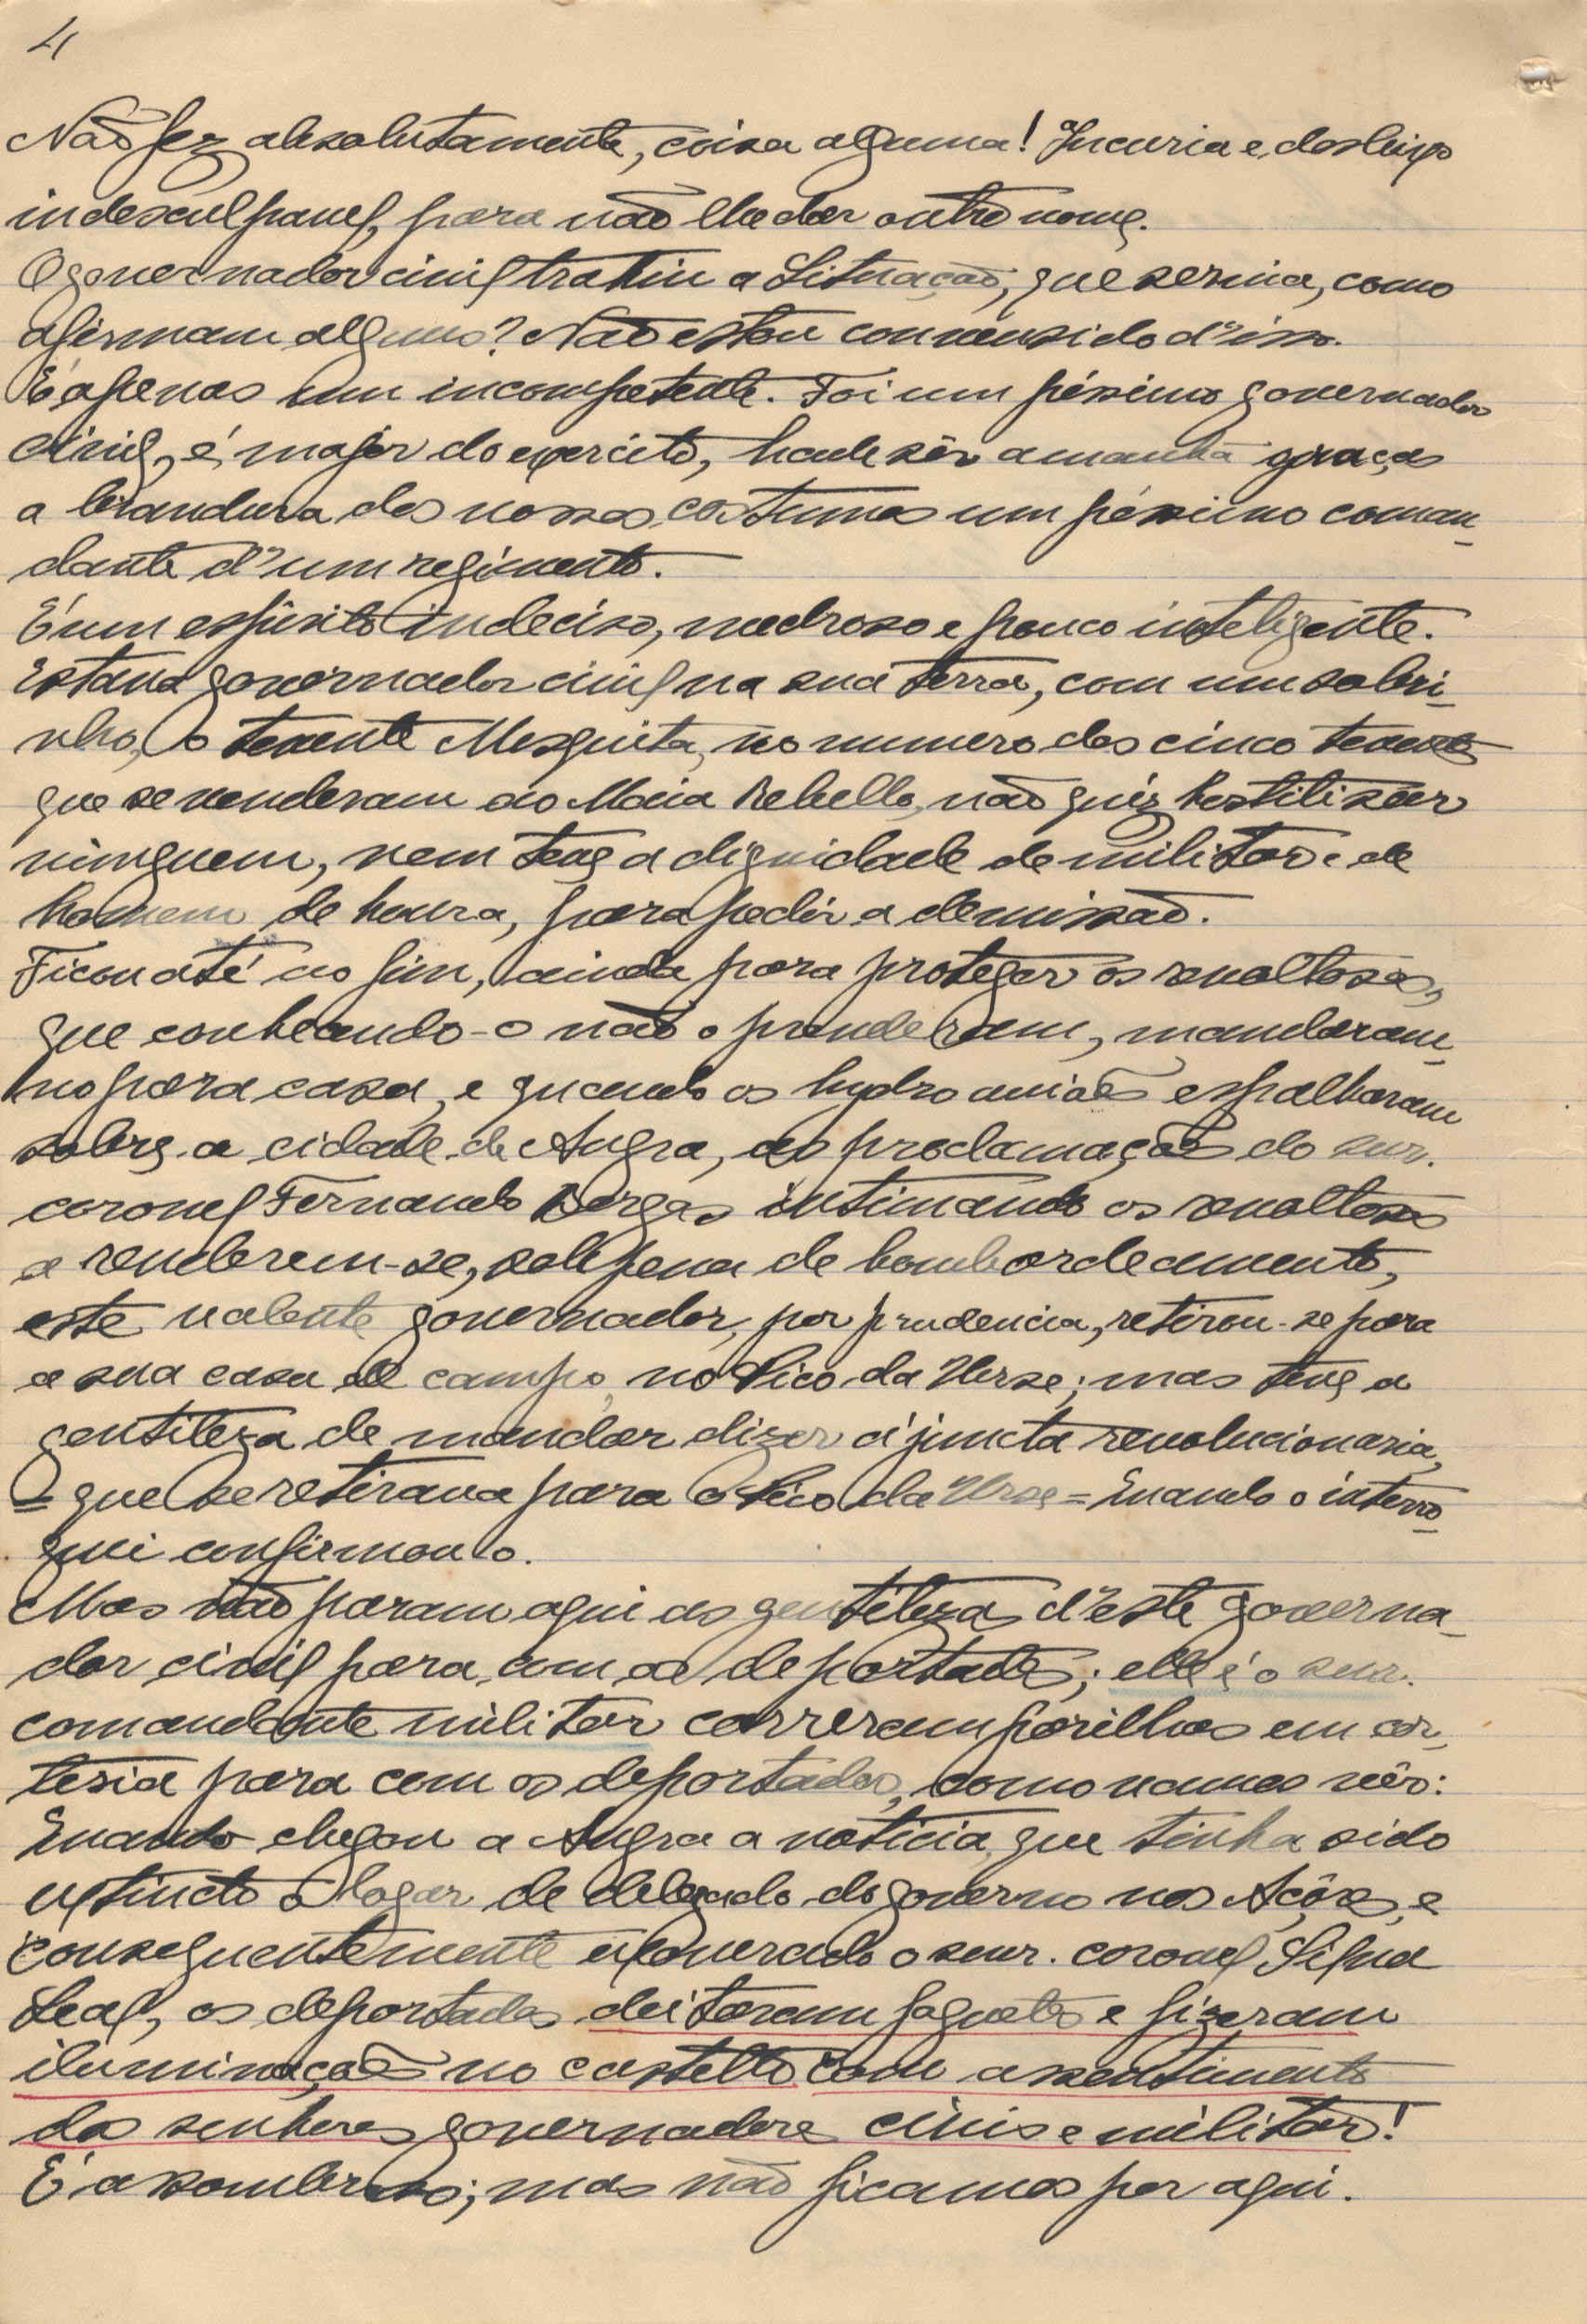 4
Não fez absolutamente, coisa alguma! Incuria e desleixo
indesculpavel, para não lhe dar outro nome.
O governador civil trahiu a Situação, que servia, como
afirmam alguns? Não estou convensido d'isso.
É apenas um incompetente. Foi um péssimo governador
civil, é major do exercito, hade sêr amanhã graças
a brandura dos nossos costumes um péssimo coman-
dante d'um regimento.
É um espirito indeciso, medroso e pouco inteligente.
Estava governador civil na sua terra, com um sobri-
nho, o tenente Mesquita, no numero dos cinco tenentes
que se venderam ao Maia Rebello, não quiz hostilisar
ninguem, nem teve a dignidade de militar e de
homem de honra, para pedir a demissão.
Ficou até ao fim, ainda para proteger os revoltosos,
que conhecendo-o não o prenderam, mandaram-
no para casa, e quando os hydro aviões espalharam
sobre a cidade de Angra, as proclamações do snr.
coronel Fernando Borges intimando os revoltosos
a renderem-se, sob pena de bombardeamento,
este valente governador, por prudencia, retirou-se para
a sua casa de campo, no Pico da Urse; mas teve a
gentileza de mandar dizer á juncta revolucionaria,
= que se retirava para o Pico da Urse = Quando o interro-
guei confirmou-o.
Mas não param aqui as gentilezas d'este governa-
dor civil para com os deportados; elle e o snr.
comandante militar correram parilhas em cor-
tesia para com os deportados, como vamos vêr:
Quando chegou a Angra a noticia, que tinha sido
extincto o logar de delegado do governo nos Açôres, e
consequentemente exonerado o snr. coronel Silva
Leal, os deportados deitaram foguetes e fizeram
iluminações no castello com assentimento
dos senhores governadores civis e militar!
É assombroso; mas não ficamos por aqui.